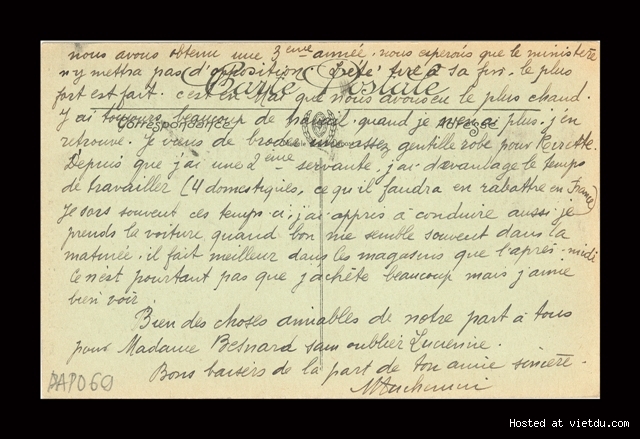 nous avons obtenu une 3ème année. nous espérons que le ministère
n'y mettra pas d'opposition. L'été tire à sa fin. le plus
Carte Postale
fort est fait. c'est en Mai que nous avons eu le plus chaud.
J'ai toujours beaucoup de travail. quand je n'en ai plus, j'en
Correspondance
Adresse
retrouve. Je viens de broder une assez gentille robe pour
Depuis que j'ai une 2ème servante, j'ai davantage le temps
de travailler (4 domestiques, ce qu'il faudra en rabattre en France)
Je sors souvent ces temps-ci, j'ai appris à conduire aussi je
prends la voiture quand bon me semble souvent dans la
matinée, il fait meilleur dans les magasins que l'après-midi
Ce n'est pourtant pas que j'achète beaucoup mais j'aime
bien voir.
Bien des choses amiables de notre part à tous
pour Madame Besnard sans oublier Lucienne.
Bons baisers de la part de ton amie sincère.
PAP060
Hosted at vietdu.com